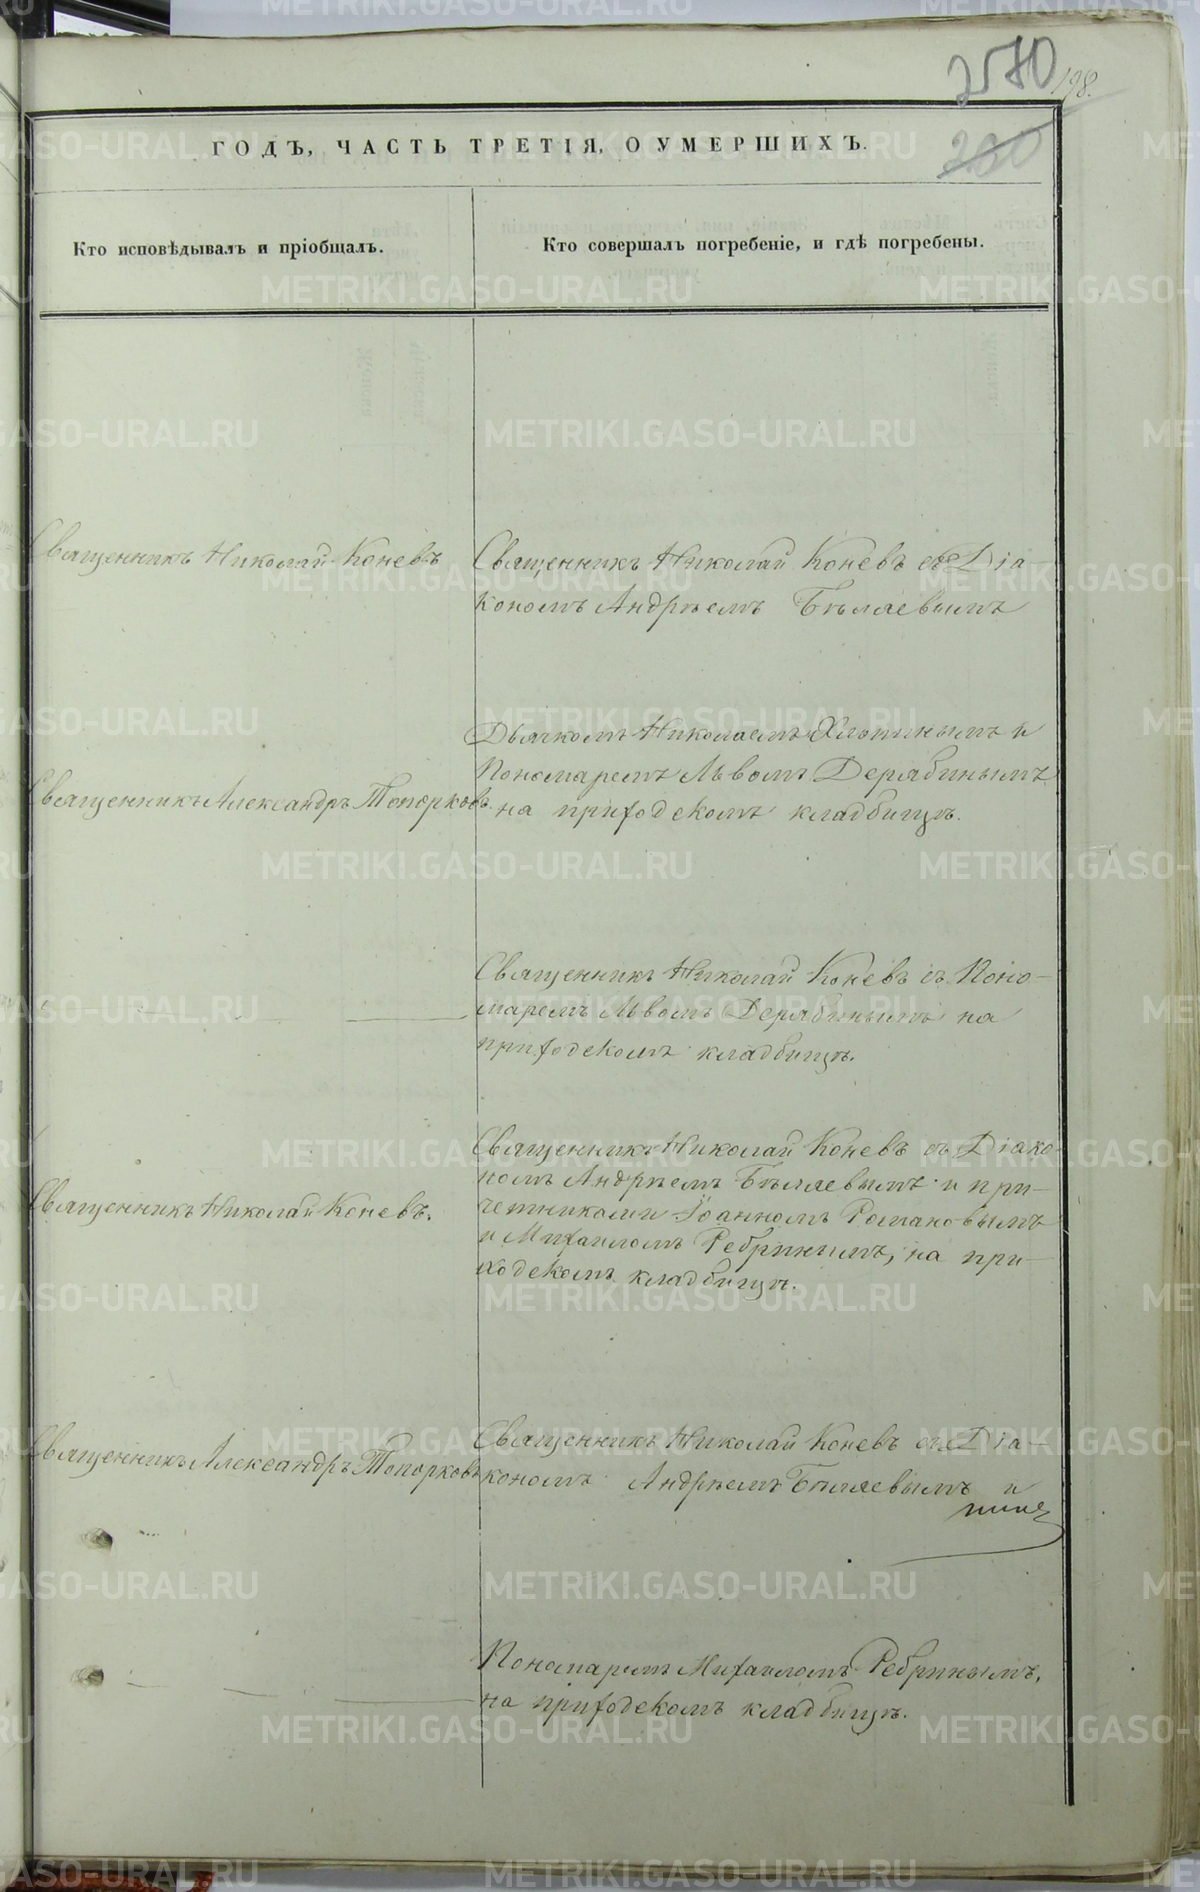 2570
198.
230
ГОДЪ, ЧАСТЬ ТРЕТІЯ, О УМЕРШИХЪ.
Кто исповѣдывалъ и пріобщалъ.
Кто совершалъ погребеніе, и гдѣ погребены.
Священникъ Николай Коневъ
Священникъ Николай Коневъ съ Діа-
кономъ Андрѣемъ Бѣляевымъ
Дьячкомъ Николаемъ Хлопинымъ и
Пономаремъ Львомъ Дерябинымъ
на приходскомъ кладбищѣ.
Священникъ Александръ Топорковъ
Священникъ Николай Коневъ съ Поно-
маремъ Львомъ Дерябинымъ на
приходскомъ кладбищѣ.
Священникъ Николай Коневъ.
Священникъ Николай Коневъ съ Діако-
номъ Андрѣемъ Бѣляевымъ и при-
четниками Іоанномъ Романовымъ
и Михаиломъ Ребринымъ, на при-
ходскомъ кладбищѣ.
Священникъ Александръ Топорковъ
Священникъ Николай Коневъ съ Діа-
кономъ Андрѣемъ Бѣляевымъ и
Пономаремъ Михаиломъ Ребринымъ,
на приходскомъ кладбищѣ.
METRIKI.GASO-URAL.RU